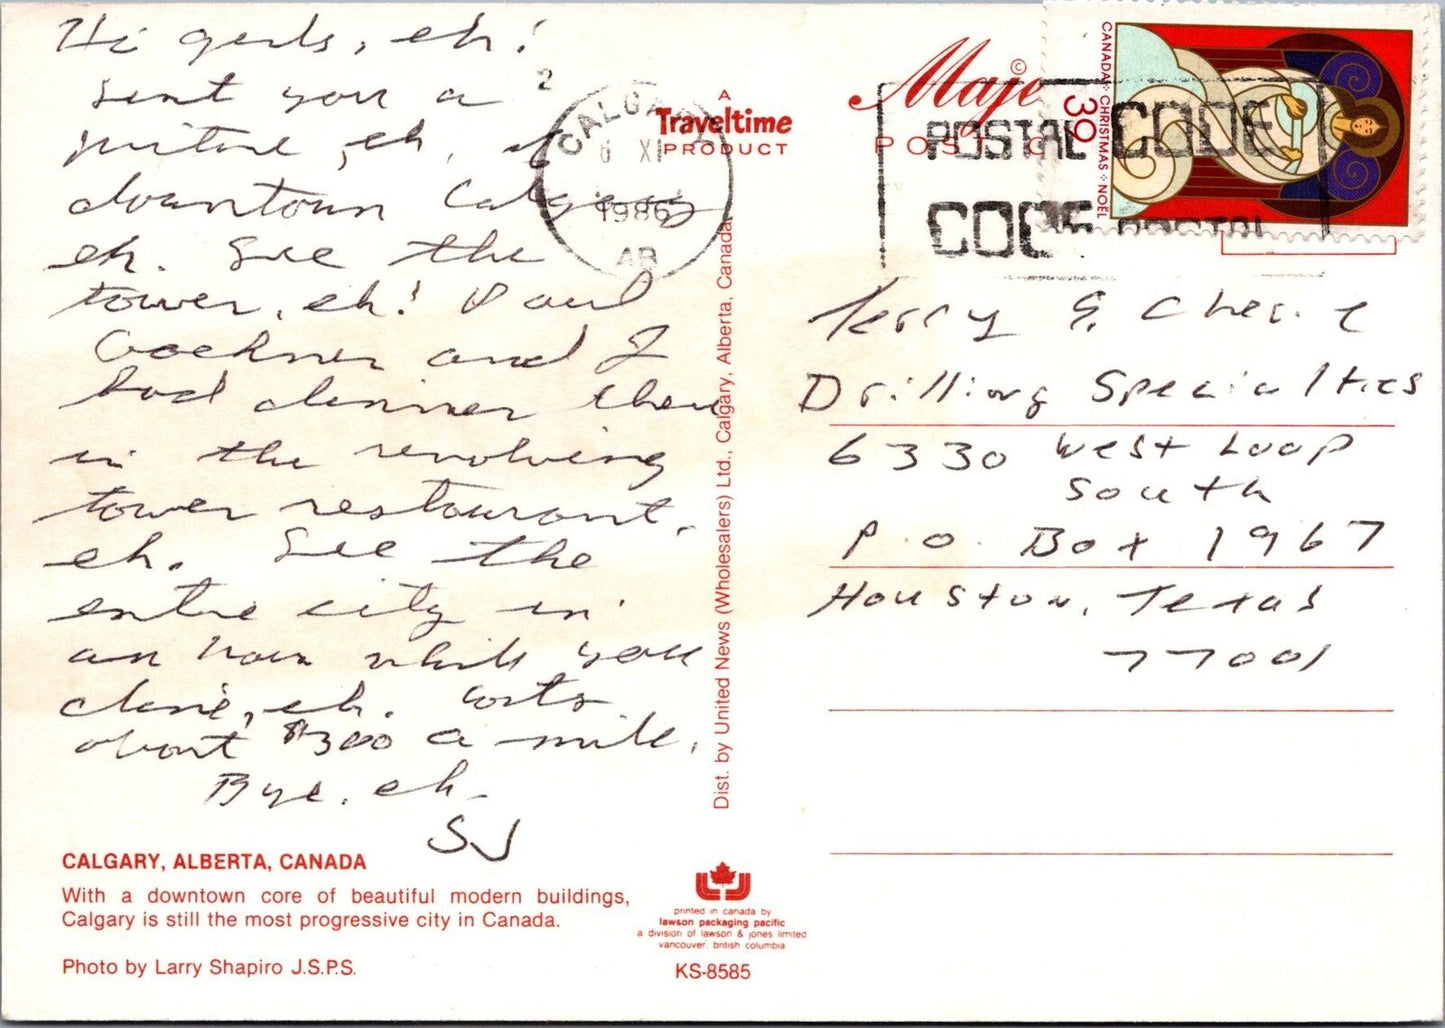 Hi gals, eh!
Sent you a
picture, eh, of
downtown Calgary
eh. See the
tower, eh! Paul
and I
had dinner there
in the revolving
tower restaurant,
eh. See the
entire city in
an hour while you
dine, eh. Costs
about $300 a mile.
Bye, eh.
SJ
CALGARY, ALBERTA, CANADA
With a downtown core of beautiful modern buildings,
Calgary is still the most progressive city in Canada.
Photo by Larry Shapiro J.S.P.S.
A
Traveltime
PRODUCT
Dist. by United News (Wholesalers) Ltd., Calgary, Alberta, Canada.
printed in canada by
lawson packaging pacific
a division of lawson & jones limited
vancouver, british columbia
KS-8585
CALGARY
6 XI
1986
AB
©
POSTAL CODE
CODE POSTAL
CANADA · CHRISTMAS · NOËL
39
Terry & Cherie
Drilling Specialties
6330 West Loop
South
P.O. Box 1967
Houston, Texas
77001